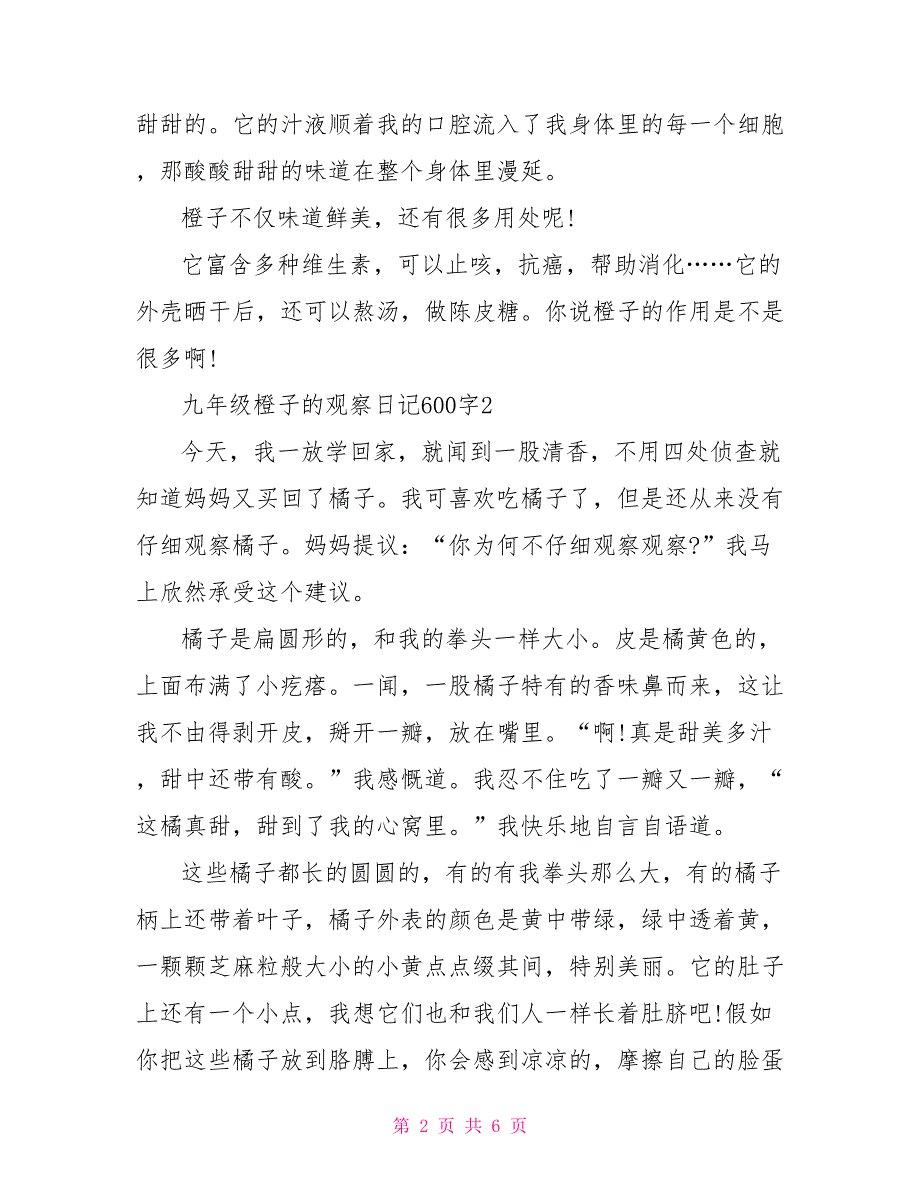 甜甜的。它的汁液顺着我的口腔流入了我身体里的每一个细胞
，那酸酸甜甜的味道在整个身体里漫延。
橙子不仅味道鲜美，还有很多用处呢!
它富含多种维生素，可以止咳，抗癌，帮助消化……它的
外壳晒干后，还可以熬汤，做陈皮糖。你说橙子的作用是不是
很多啊!
九年级橙子的观察日记600字2
今天，我一放学回家，就闻到一股清香，不用四处侦查就
知道妈妈又买回了橘子。我可喜欢吃橘子了，但是还从来没有
仔细观察橘子。妈妈提议：“你为何不仔细观察观察?”我马
上欣然承受这个建议。
橘子是扁圆形的，和我的拳头一样大小。皮是橘黄色的，
上面布满了小疙瘩。一闻，一股橘子特有的香味鼻而来，这让
我不由得剥开皮，掰开一瓣，放在嘴里。“啊!真是甜美多汁
，甜中还带有酸。”我感慨道。我忍不住吃了一瓣又一瓣，“
这橘真甜，甜到了我的心窝里。”我快乐地自言自语道。
这些橘子都长的圆圆的，有的有我拳头那么大，有的橘子
柄上还带着叶子，橘子外表的颜色是黄中带绿，绿中透着黄，
一颗颗芝麻粒般大小的小黄点点缀其间，特别美丽。它的肚子
上还有一个小点，我想它们也和我们人一样长着肚脐吧!假如
你把这些橘子放到胳膊上，你会感到凉凉的，摩擦自己的脸蛋
第 2 页 共 6 页